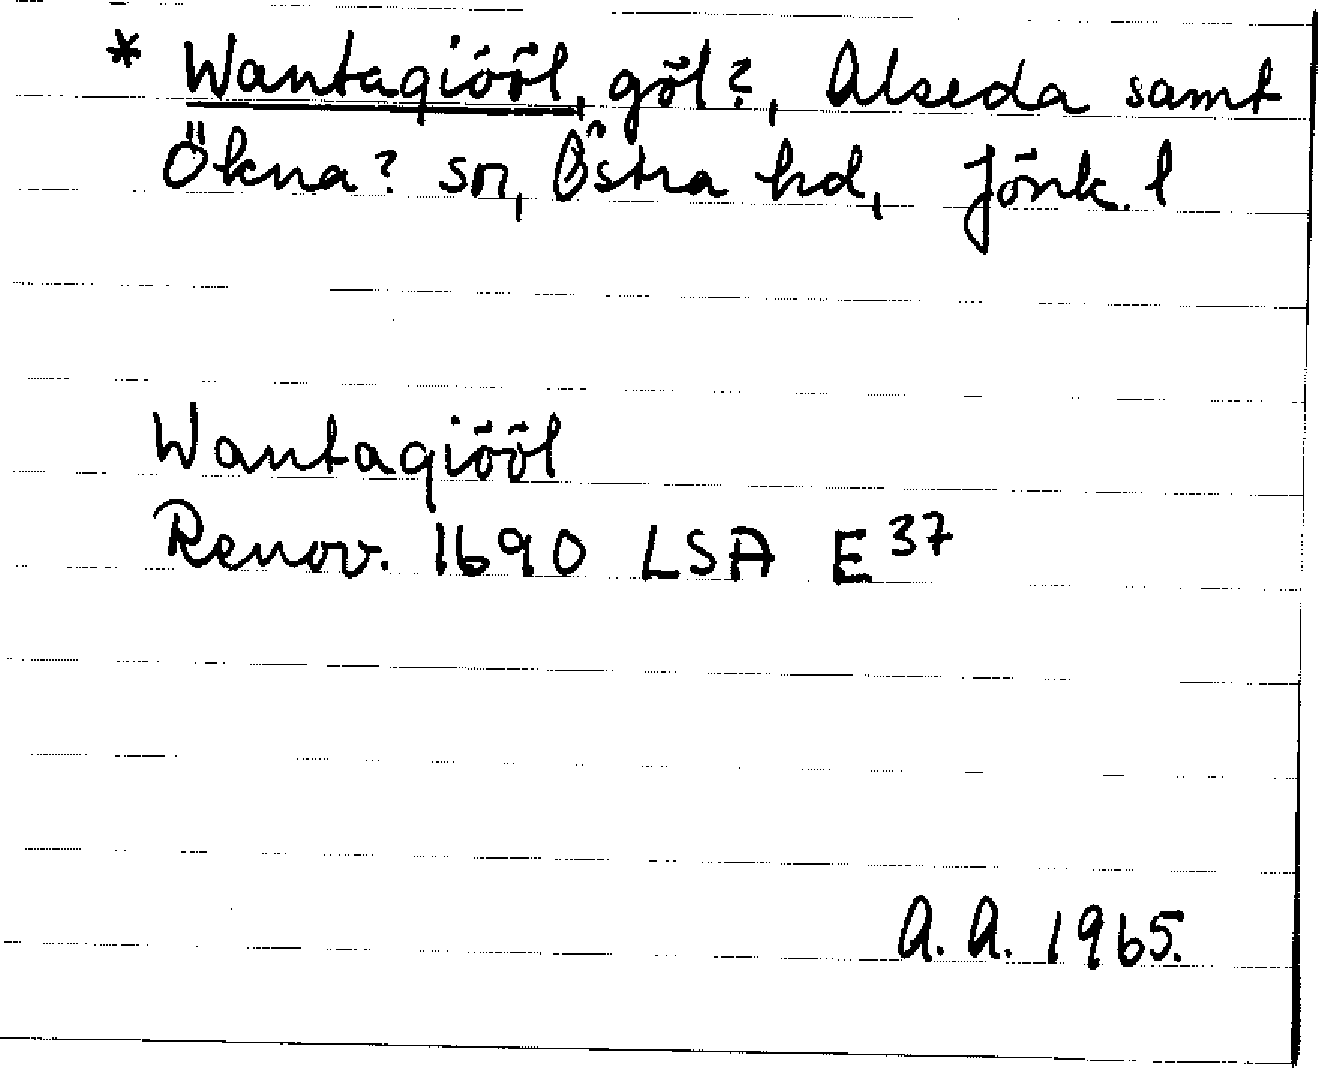 * Wantagiööl, göl?, Alseda samt
Ökna? sn, Östra hd, Jönk. l
Wantagiööl
Renov. 1690 LSA E³⁷
A. A. 1965.